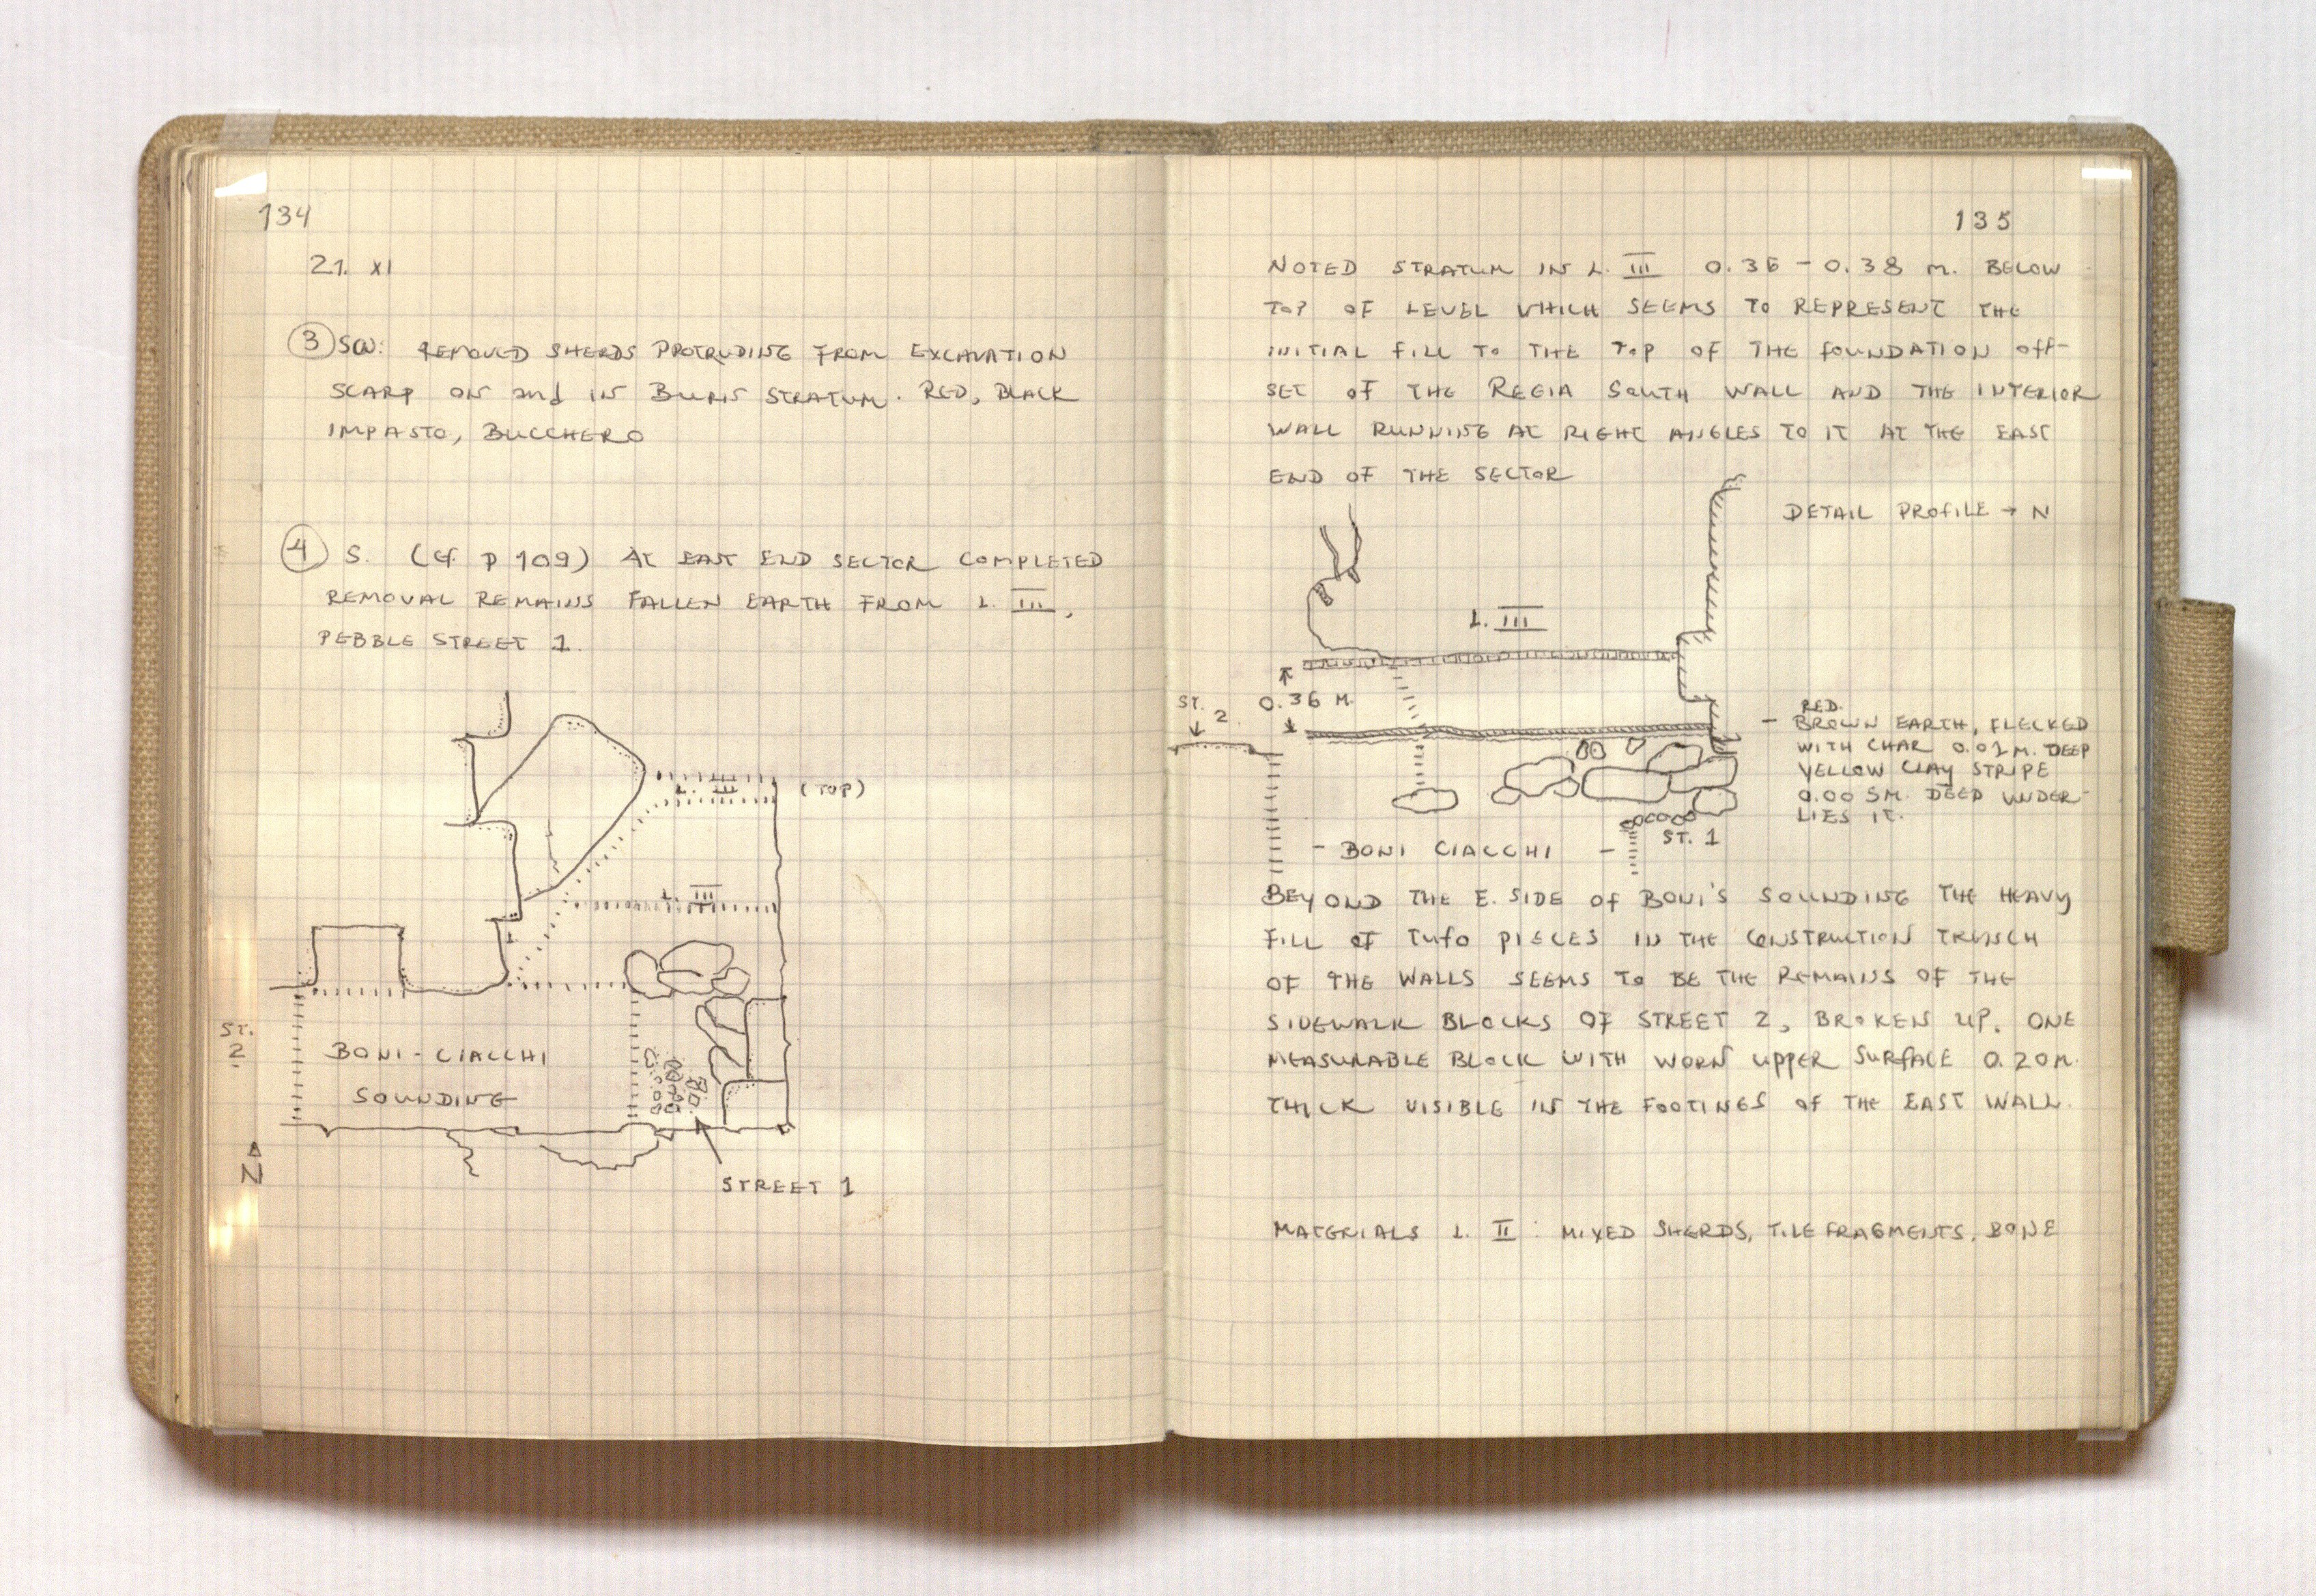 134
21. XI
③ SW: REMOVED SHERDS PROTRUDING FROM EXCAVATION
SCARP ON and IN BURN STRATUM. RED, BLACK
IMPASTO, BUCCHERO
④ S. (Cf. P 109) AT EAST END SECTOR COMPLETED
REMOVAL REMAINS FALLEN EARTH FROM L. III,
PEBBLE STREET 1.
L. III (TOP)
L. III
ST.
2
BONI-CIACCHI
SOUNDING
N
STREET 1
135
NOTED STRATUM IN L. III 0.36 - 0.38 M. BELOW
TOP OF LEVEL WHICH SEEMS TO REPRESENT THE
INITIAL FILL TO THE TOP OF THE FOUNDATION OFF-
SET OF THE REGIA SOUTH WALL AND THE INTERIOR
WALL RUNNING AT RIGHT ANGLES TO IT AT THE EAST
END OF THE SECTOR
DETAIL PROFILE → N
L. III
ST.
2
0.36 M.
RED.
- BROWN EARTH, FLECKED
WITH CHAR 0.01 M. DEEP
YELLOW CLAY STRIPE
0.005M. DEEP UNDER-
LIES IT.
ST. 1
- BONI CIACCHI -
BEYOND THE E. SIDE OF BONI'S SOUNDING THE HEAVY
FILL OF TUFO PIECES IN THE CONSTRUCTION TRENCH
OF THE WALLS SEEMS TO BE THE REMAINS OF THE
SIDEWALK BLOCKS OF STREET 2, BROKEN UP. ONE
MEASURABLE BLOCK WITH WORN UPPER SURFACE 0.20M.
THICK VISIBLE IN THE FOOTINGS OF THE EAST WALL.
MATERIALS L. II: MIXED SHERDS, TILE FRAGMENTS, BONE